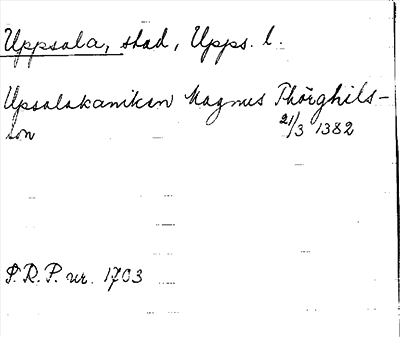 Uppsala, stad, Upps. l.
Upsalakaniken Magnus Thörghils-
son
21/3 1382
S.R.P. nr. 1703